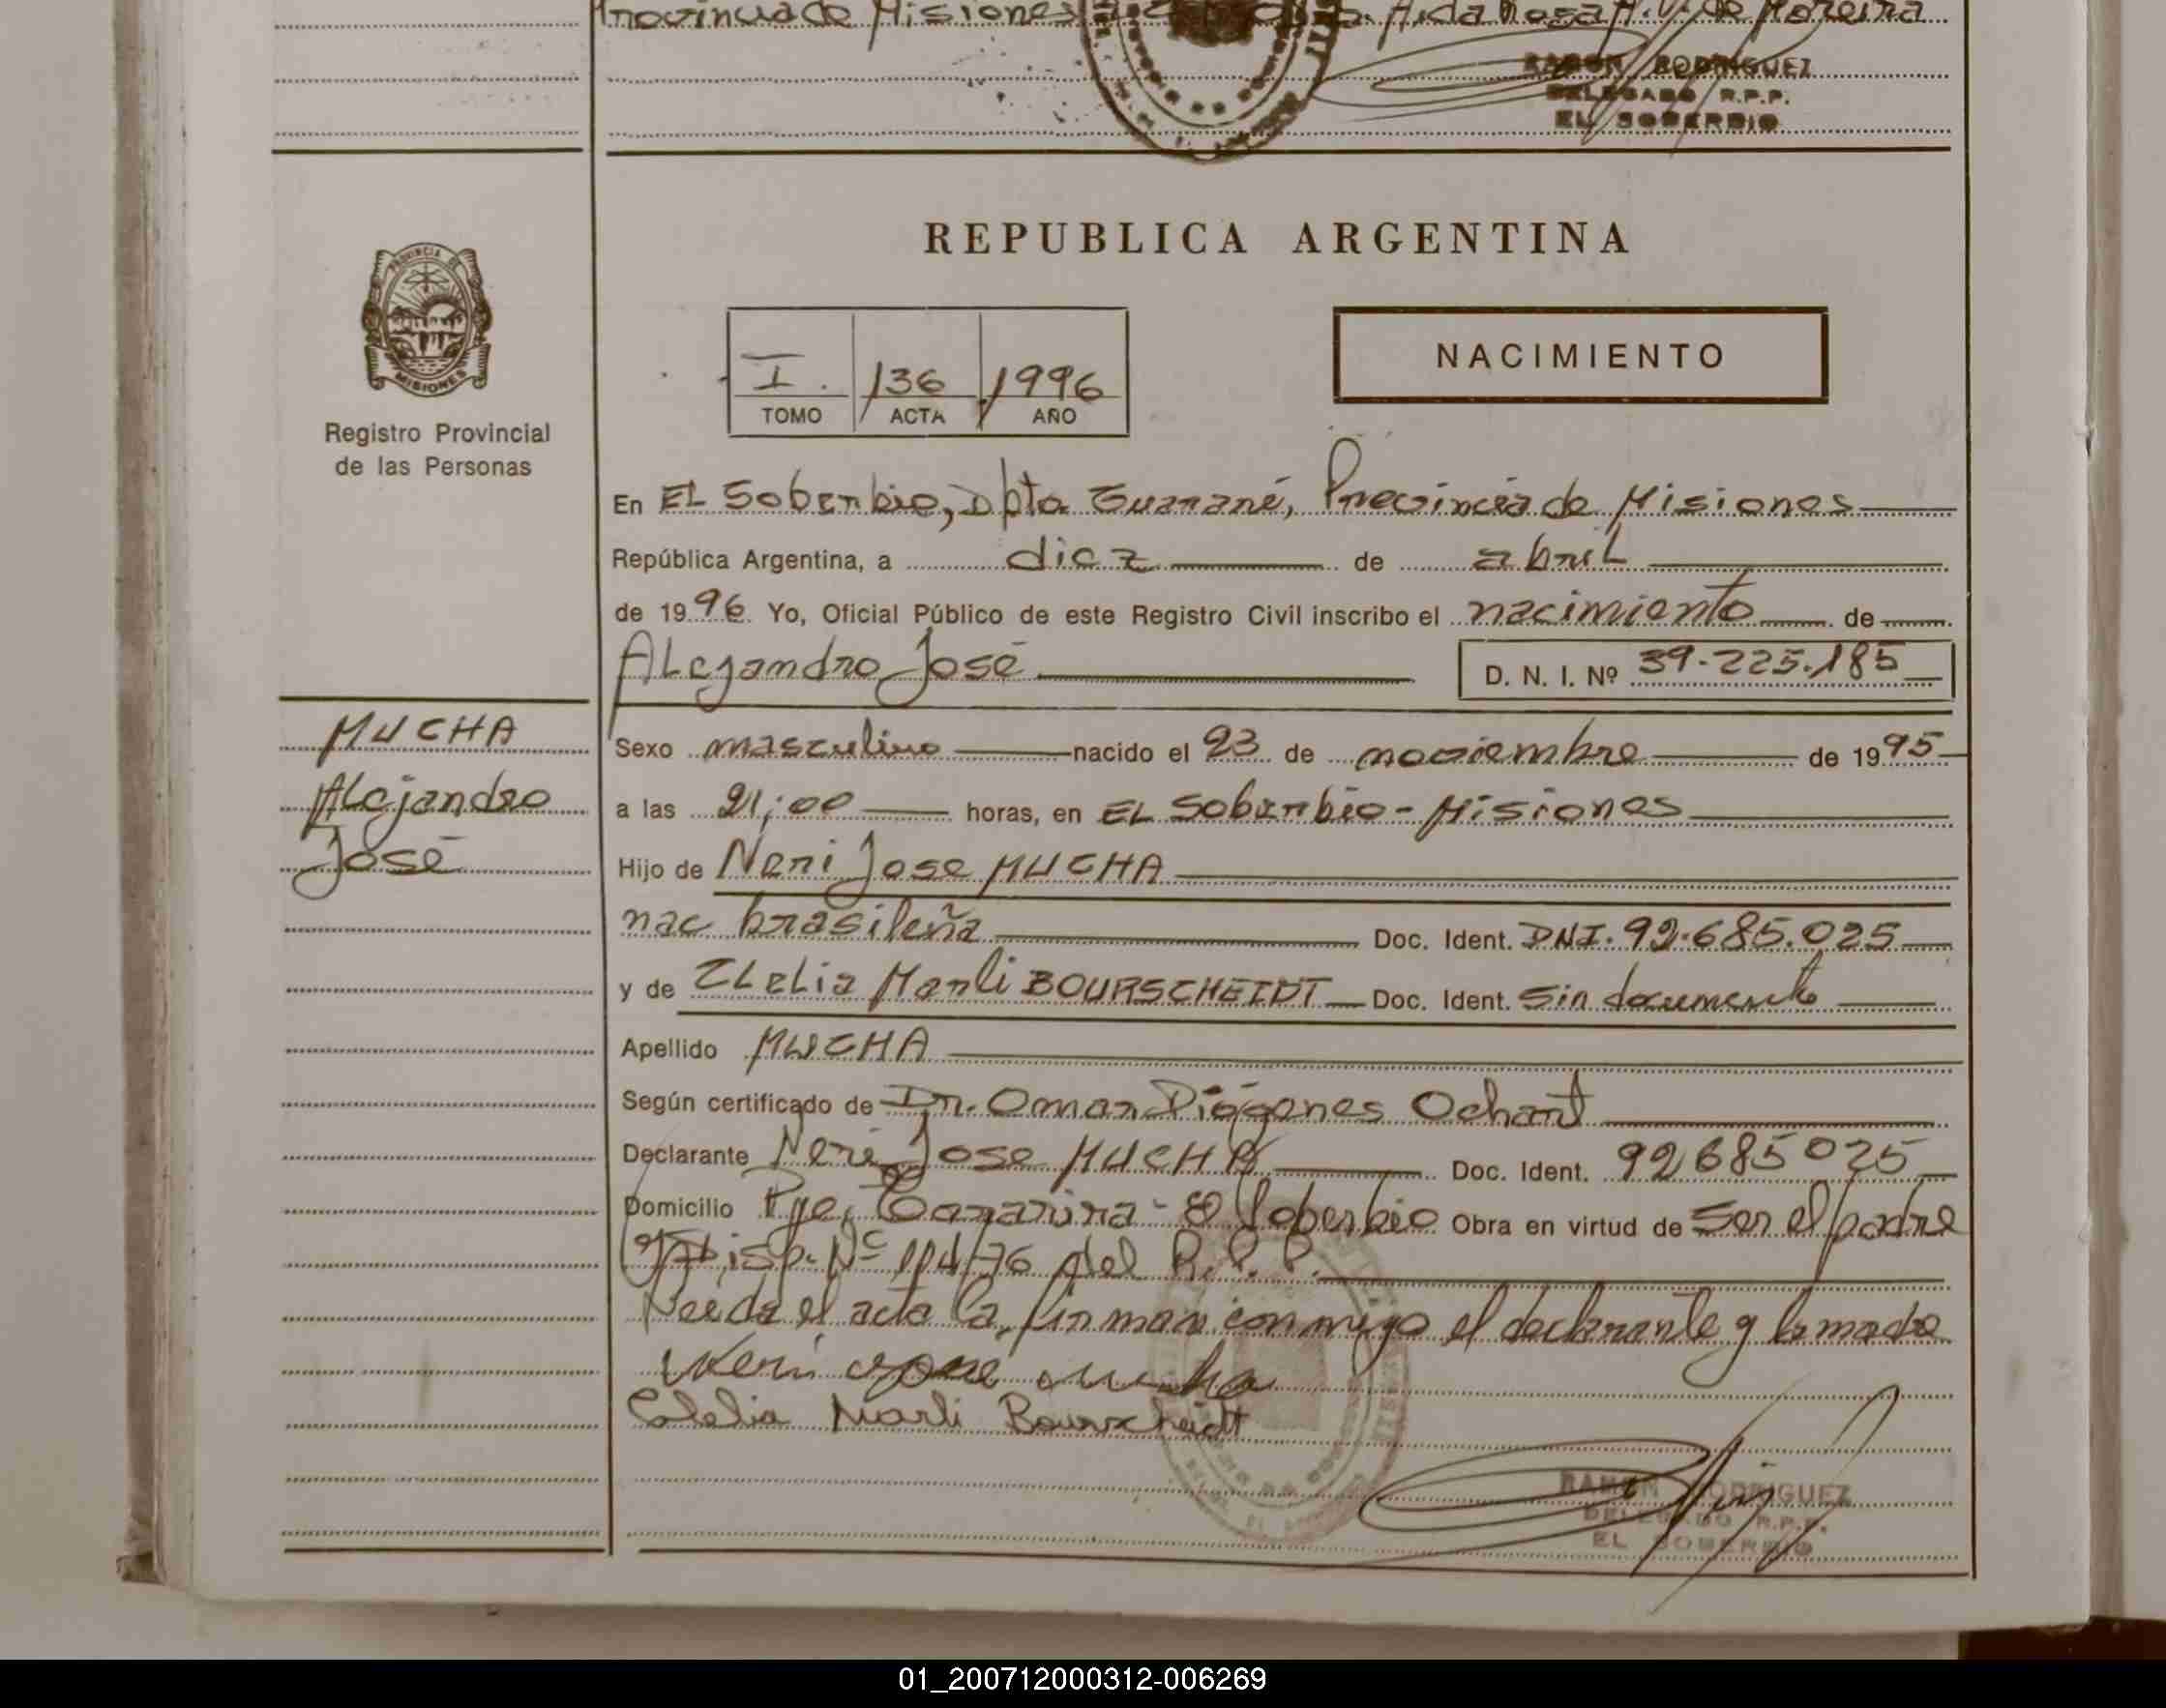 Provincia de Misiones
Aida Rosa
de Moreira
RAMON RODRIGUEZ
DELEGADO R.P.P.
EL SOBERBIO
REPUBLICA ARGENTINA
PROVINCIA DE
MISIONES
Registro Provincial
de las Personas
I. 136 1996
TOMO ACTA AÑO
NACIMIENTO
En EL Soberbio, Dpto Guaraní, Provincia de Misiones
República Argentina, a diez de abril
de 1996 Yo, Oficial Público de este Registro Civil inscribo el nacimiento de
Alejandro José D. N. I. Nº 39.225.185
MUCHA
Alejandro
José
Sexo masculino nacido el 23 de noviembre de 1995
a las 21;00 horas, en EL Soberbio - Misiones
Hijo de Neri Jose MUCHA
nac brasileña Doc. Ident. DNI. 92.685.025
y de Clelia Marli BOURSCHEIDT Doc. Ident. Sin documento
Apellido MUCHA
Según certificado de Dr. Omar Diógenes Ochart
Declarante Neri Jose MUCHA Doc. Ident. 92685025
Domicilio Pje. El Soberbio Obra en virtud de Ser el padre
Disp. Nº 114/76 del R.P.P.
Leida el acta la firman conmigo el declarante y la madre
Neri Jose Mucha
Clelia Marli Bourscheidt
RAMON RODRIGUEZ
DELEGADO R.P.P.
EL SOBERBIO
01_200712000312-006269